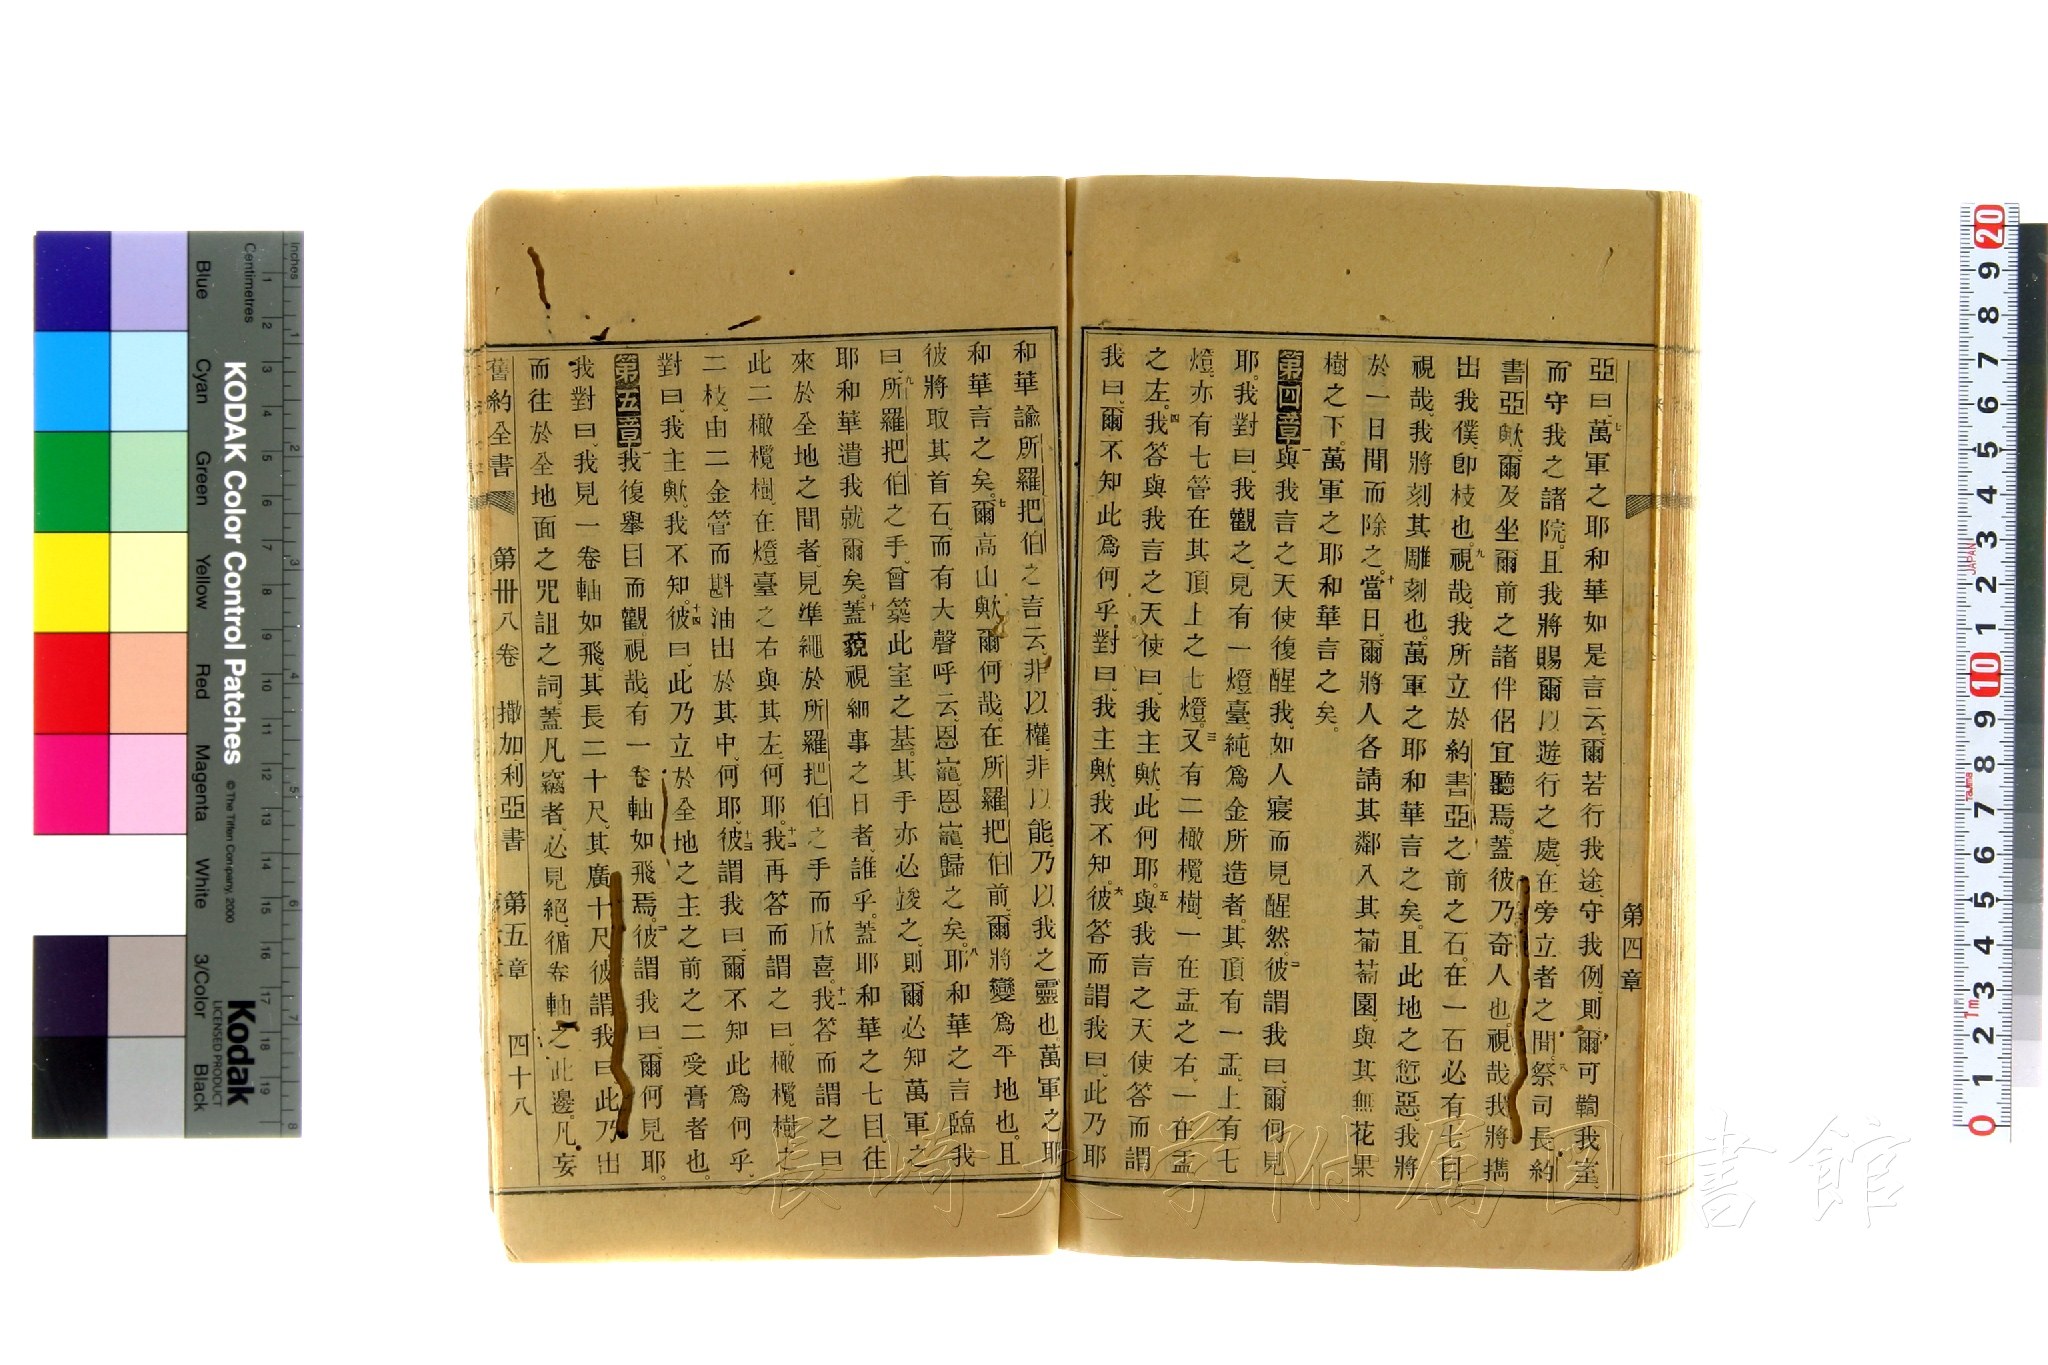 第四章
亞曰、七萬軍之耶和華如是言云、爾若行我途、守我例、則爾可鞫我室、
而守我之諸院、且我將賜爾以遊行之處、在旁立者之間、八祭司長約
書亞歟、爾及坐爾前之諸伴侶宜聽焉、蓋彼乃奇人也、視哉、我將擕
出我僕、卽枝也、九視哉、我所立於約書亞之前之石、在一石必有七目
視哉、我將刻其雕刻也、萬軍之耶和華言之矣、且此地之愆惡、我將
於一日間而除之、十當日、爾將人各請其鄰入其葡萄園、與其無花果
樹之下、萬軍之耶和華言之矣。
第四章一與我言之天使復醒我、如人寢而見醒然、二彼謂我曰、爾何見
耶、我對曰、我觀之、見有一燈臺、純爲金所造者、其頂有一盂、上有七
燈、亦有七管在其頂上之七燈、三又有二橄欖樹、一在盂之右、一在盂
之左、四我答與我言之天使曰、我主歟、此何耶、五與我言之天使答而謂
我曰、爾不知此爲何乎、對曰、我主歟、我不知、六彼答而謂我曰、此乃耶
和華諭所羅把伯之言云、非以權、非以能、乃以我之靈也、萬軍之耶
和華言之矣、七爾高山歟、爾何哉、在所羅把伯前、爾將變爲平地也、且
彼將取其首石、而有大聲呼云、恩寵、恩寵、歸之矣、八耶和華之言臨我
曰、九所羅把伯之手、曾築此室之基、其手亦必竣之、則爾必知萬軍之
耶和華遣我就爾矣、十蓋藐視細事之日者、誰乎、蓋耶和華之七目往
來於全地之間者、見準繩於所羅把伯之手而欣喜、十一我答而謂之曰
此二橄欖樹、在燈臺之右與其左、何耶、十二我再答而謂之曰、橄欖樹之
二枝、由二金管而斟油出於其中、何耶、十三彼謂我曰、爾不知此爲何乎、
對曰、我主歟、我不知、十四彼曰、此乃立於全地之主之前之二受膏者也。
第五章一我復舉目而觀、視哉、有一卷軸如飛焉、二彼謂我曰、爾何見耶。
我對曰、我見一卷軸如飛、其長二十尺、其廣十尺、三彼謂我曰、此乃出
而往於全地面之咒詛之詞、蓋凡竊者、必見絕、循卷軸之此邊、凡妄
舊約全書 第卅八卷 撒加利亞書 第五章 四十八
KODAK Color Control Patches
© The Tiffen Company, 2000
Kodak
LICENSED PRODUCT
Inches
Centimetres
Blue
Cyan
Green
Yellow
Red
Magenta
White
3/Color
Black
長崎大学附属図書館
JAPAN